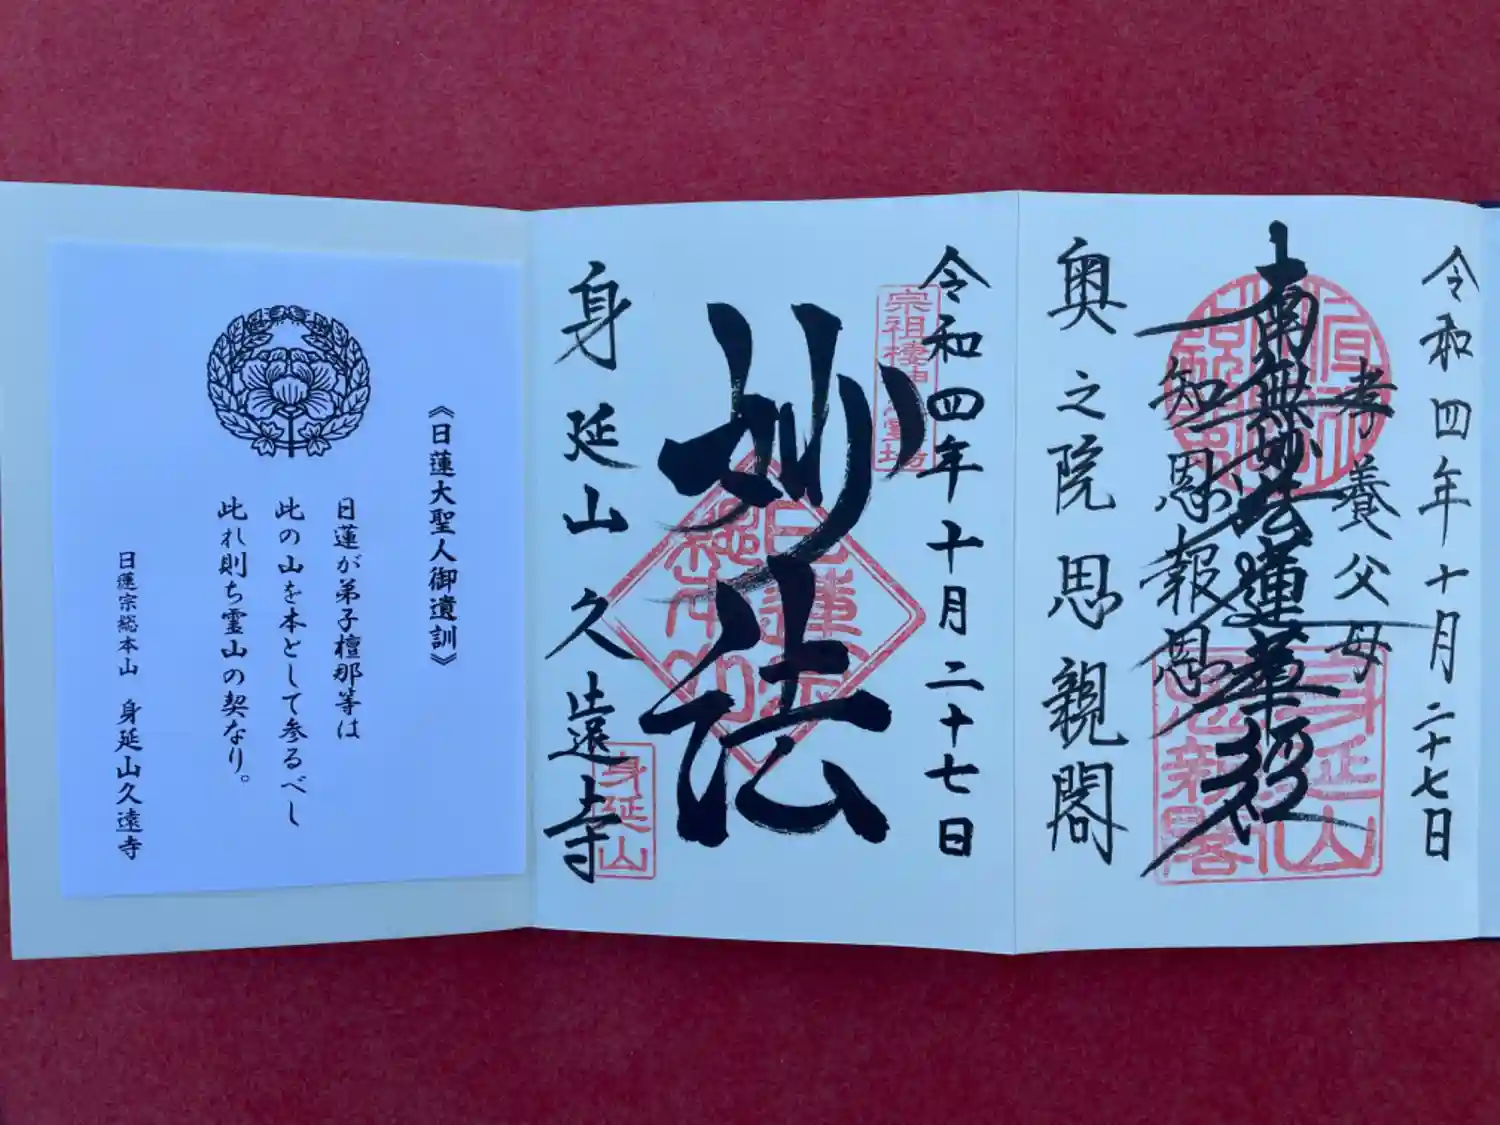 令和四年十月二十七日
孝養父母
南無妙法蓮華経
知恩報恩
身延山
思親閣
奥之院思親閣
令和四年十月二十七日
宗祖棲神霊場
妙法
日蓮宗
総本山
身延山久遠寺
身延山
《日蓮大聖人御遺訓》
日蓮が弟子檀那等は
此の山を本として参るべし
此れ則ち霊山の契なり。
日蓮宗総本山 身延山久遠寺